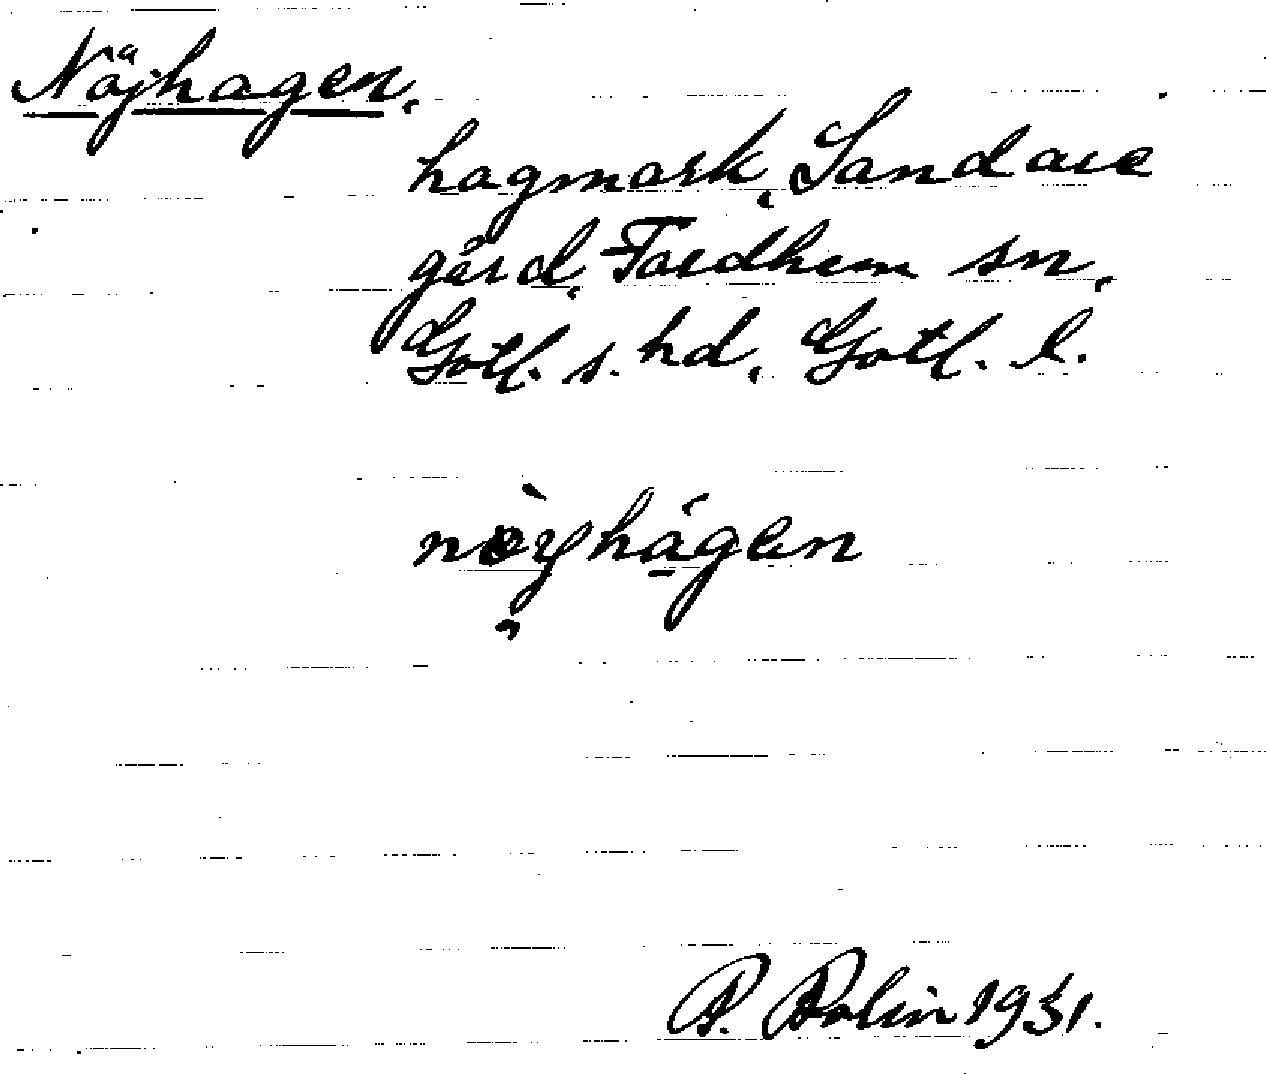 Nöjhagen.
hagmark, Sandare
gård, Fardhem sn,
Gotl. s. hd, Gotl. l.
nøyhágen
P. Bolin 1931.